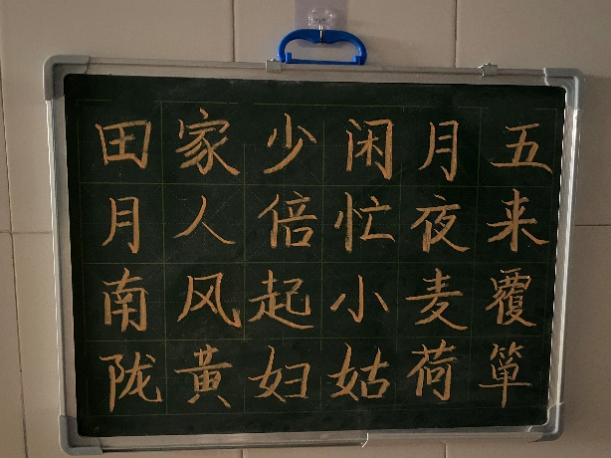 田家少闲月五
月人倍忙夜来
南风起小麦覆
陇黄妇姑荷箪